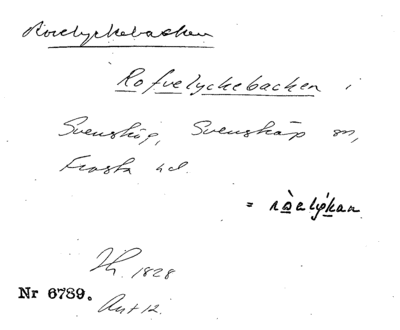 Rovelyckebacken
Rofvelyckebacken i
Svensköp, Svensköps sn,
Frosta hd.
= ròelýkan
1828
Nr 6789.
Ant 12.